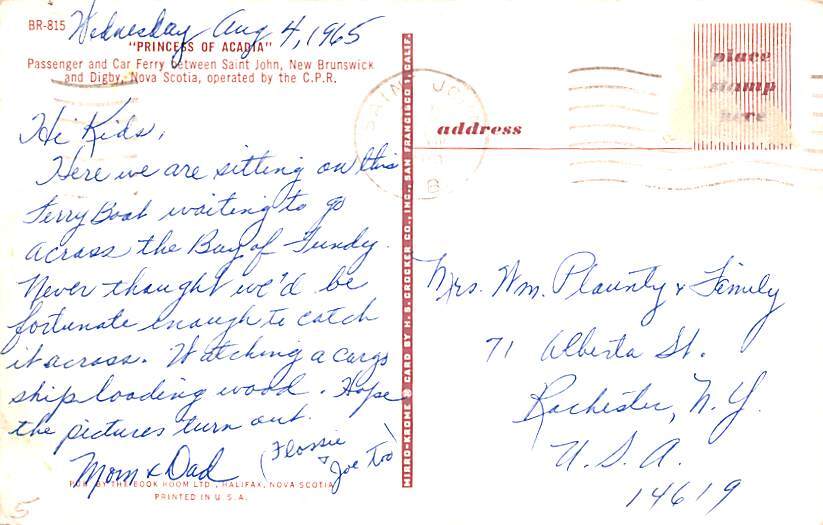 Wednesday Aug 4, 1965
BR-815
"PRINCESS OF ACADIA"
Passenger and Car Ferry between Saint John, New Brunswick
and Digby, Nova Scotia, operated by the C.P.R.
Hi Kids,
Here we are sitting on this
Ferry Boat waiting to go
across the Bay of Fundy.
Never thought we'd be
fortunate enough to catch
it across. Watching a cargo
ship loading wood. Hope
the pictures turn out.
Mom & Dad
(Flossie
& Joe Too)
PUB. BY THE BOOK ROOM LTD., HALIFAX, NOVA SCOTIA
PRINTED IN U.S.A.
5
MIRRO-KROME ® CARD BY H. S. CROCKER CO., INC., SAN FRANCISCO 1, CALIF.
SAINT JO
B
place
stamp
here
address
Mrs. Wm. Plaunty & Family
71 Alberta St.
Rochester, N.Y.
U.S.A.
14619